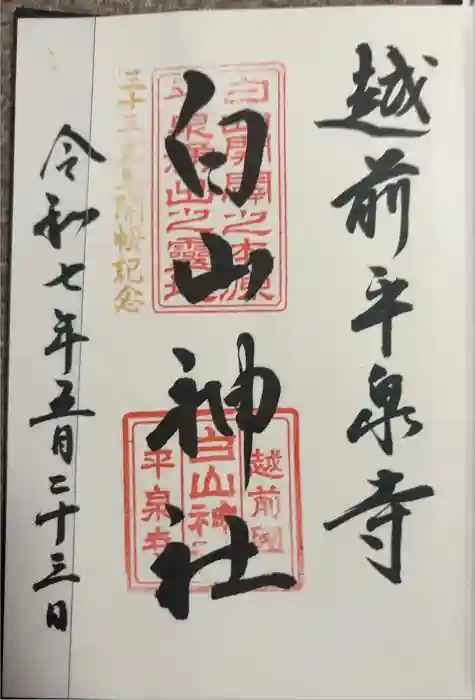 越前平泉寺
白山神社
白山開闢之本源
平泉湧出之靈地
越前國
白山神社
平泉寺
三十三年目開帳記念
令和七年五月二十三日